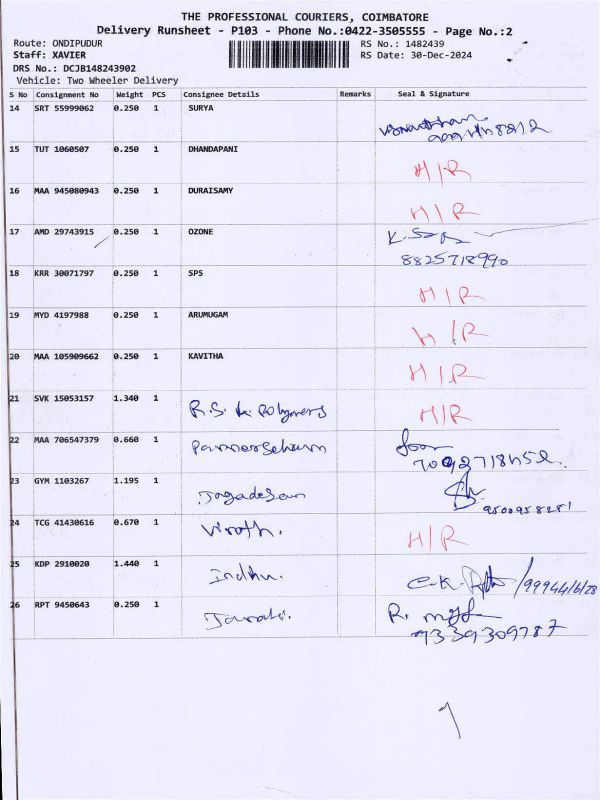 THE PROFESSIONAL COURIERS, COIMBATORE
Delivery Runsheet - P103 - Phone No.:0422-3505555 - Page No.:2
Route: ONDIPUDUR RS No.: 1482439
Staff: XAVIER RS Date: 30-Dec-2024
DRS No.: DCJB148243902
Vehicle: Two Wheeler Delivery
S No Consignment No Weight PCS Consignee Details Remarks Seal & Signature
14 SRT 55999062 0.250 1 SURYA
15 TUT 1060507 0.250 1 DHANDAPANI H/R
16 MAA 945080943 0.250 1 DURAISAMY H/R
17 AMD 29743915 0.250 1 OZONE
8825718990
18 KRR 30071797 0.250 1 SPS H/R
19 MYD 4197988 0.250 1 ARUMUGAM H/R
20 MAA 105909662 0.250 1 KAVITHA H/R
21 SVK 15053157 1.340 1 R.S. Polymers H/R
22 MAA 706547379 0.660 1
23 GYM 1103267 1.195 1 Jagadesan
9500958281
24 TCG 41430616 0.670 1 H/R
25 KDP 2910020 1.440 1 Indhu.
26 RPT 9450643 0.250 1 R.
9339309787